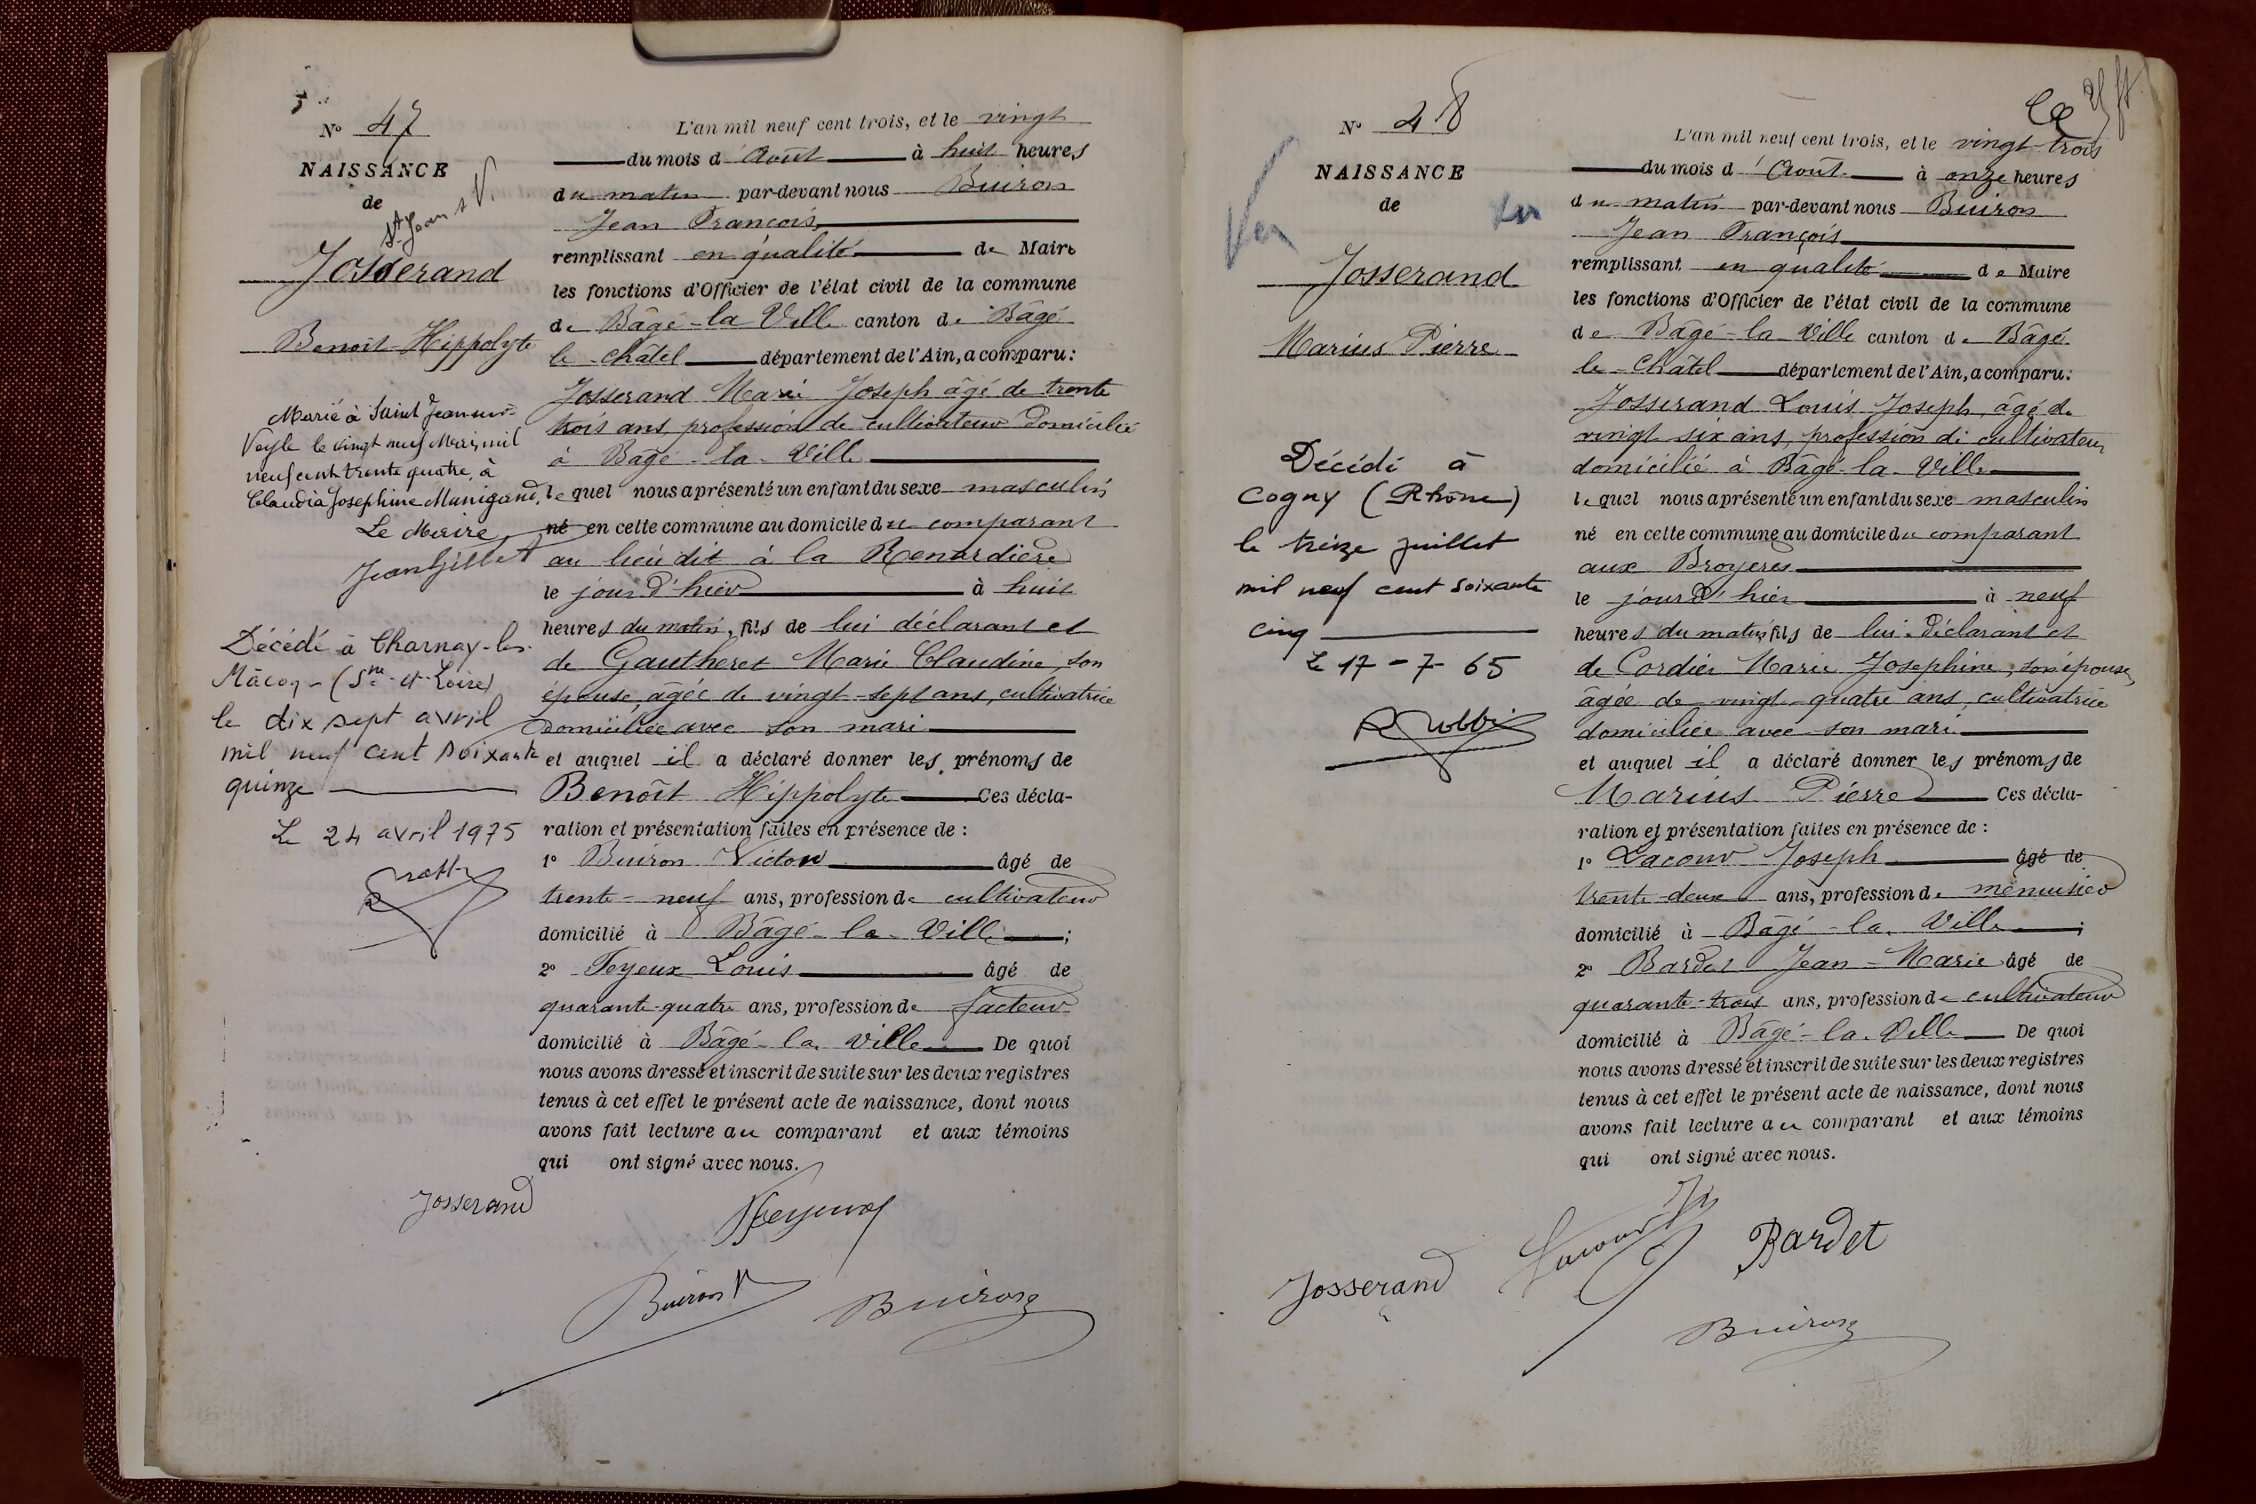 N° 47
NAISSANCE
de
St Jean s V.
Josserand
Benoît Hippolyte
Marié à Saint Jean sur
Veyle le vingt neuf Mars mil
neuf cent trente quatre à
Claudia Josephine Munigand.
Le Maire
Jean Gillet
Décédé à Charnay-les-
Mâcon (Sne-et-Loire)
le dix sept avril
mil neuf cent soixante
quinze
Le 24 avril 1975
L'an mil neuf cent trois, et le vingt
du mois d'Août à huit heures
du matin par-devant nous Buiron
Jean François,
remplissant en qualité de Maire
les fonctions d'Officier de l'état civil de la commune
de Bâgé-la-Ville canton de Bâgé
le châtel département de l'Ain, a comparu:
Josserand Marie Joseph âgé de trente
trois ans, profession de cultivateur domicilié
à Bâgé-la-Ville
lequel nous a présenté un enfant du sexe masculin
né en cette commune au domicile du comparant
au lieu dit à la Renardière
le jour d'hier à huit
heures du matin, fils de lui déclarant et
de Gautheret Marie Claudine, son
épouse, âgée de vingt-sept ans, cultivatrice
domiciliée avec son mari
et auquel il a déclaré donner les prénoms de
Benoît Hippolyte Ces décla-
ration et présentation faites en présence de :
1° Buiron Victor âgé de
trente-neuf ans, profession de cultivateur
domicilié à Bâgé-la-Ville ;
2° Feyeux Louis âgé de
quarante-quatre ans, profession de facteur
domicilié à Bâgé-la-Ville De quoi
nous avons dressé et inscrit de suite sur les deux registres
tenus à cet effet le présent acte de naissance, dont nous
avons fait lecture au comparant et aux témoins
qui ont signé avec nous.
Josserand Feyeux
Buiron V Buiron
N° 48
NAISSANCE
de
Josserand
Marius Pierre
Décédé à
Cogny (Rhône)
le treize juillet
mil neuf cent soixante
cinq
Le 17-7-65
L'an mil neuf cent trois, et le vingt-trois
du mois d'Août à onze heures
du matin par-devant nous Buiron
Jean François
remplissant en qualité de Maire
les fonctions d'Officier de l'état civil de la commune
de Bâgé-la-Ville canton de Bâgé
le-Châtel département de l'Ain, a comparu:
Josserand Louis Joseph, âgé de
vingt six ans, profession de cultivateur
domicilié à Bâgé-la-Ville
lequel nous a présenté un enfant du sexe masculin
né en cette commune au domicile du comparant
aux Broyères
le jour d'hier à neuf
heures du matin fils de lui déclarant et
de Cordier Marie Josephine, son épouse,
âgée de vingt-quatre ans, cultivatrice
domiciliée avec son mari
et auquel il a déclaré donner les prénoms de
Marius Pierre Ces décla-
ration et présentation faites en présence de :
1° Lacour Joseph âgé de
trente-deux ans, profession de menuisier
domicilié à Bâgé-la-Ville ;
2° Bardet Jean-Marie âgé de
quarante-trois ans, profession de cultivateur
domicilié à Bâgé-la-Ville De quoi
nous avons dressé et inscrit de suite sur les deux registres
tenus à cet effet le présent acte de naissance, dont nous
avons fait lecture au comparant et aux témoins
qui ont signé avec nous.
Josserand Lacour Bardet
Buiron